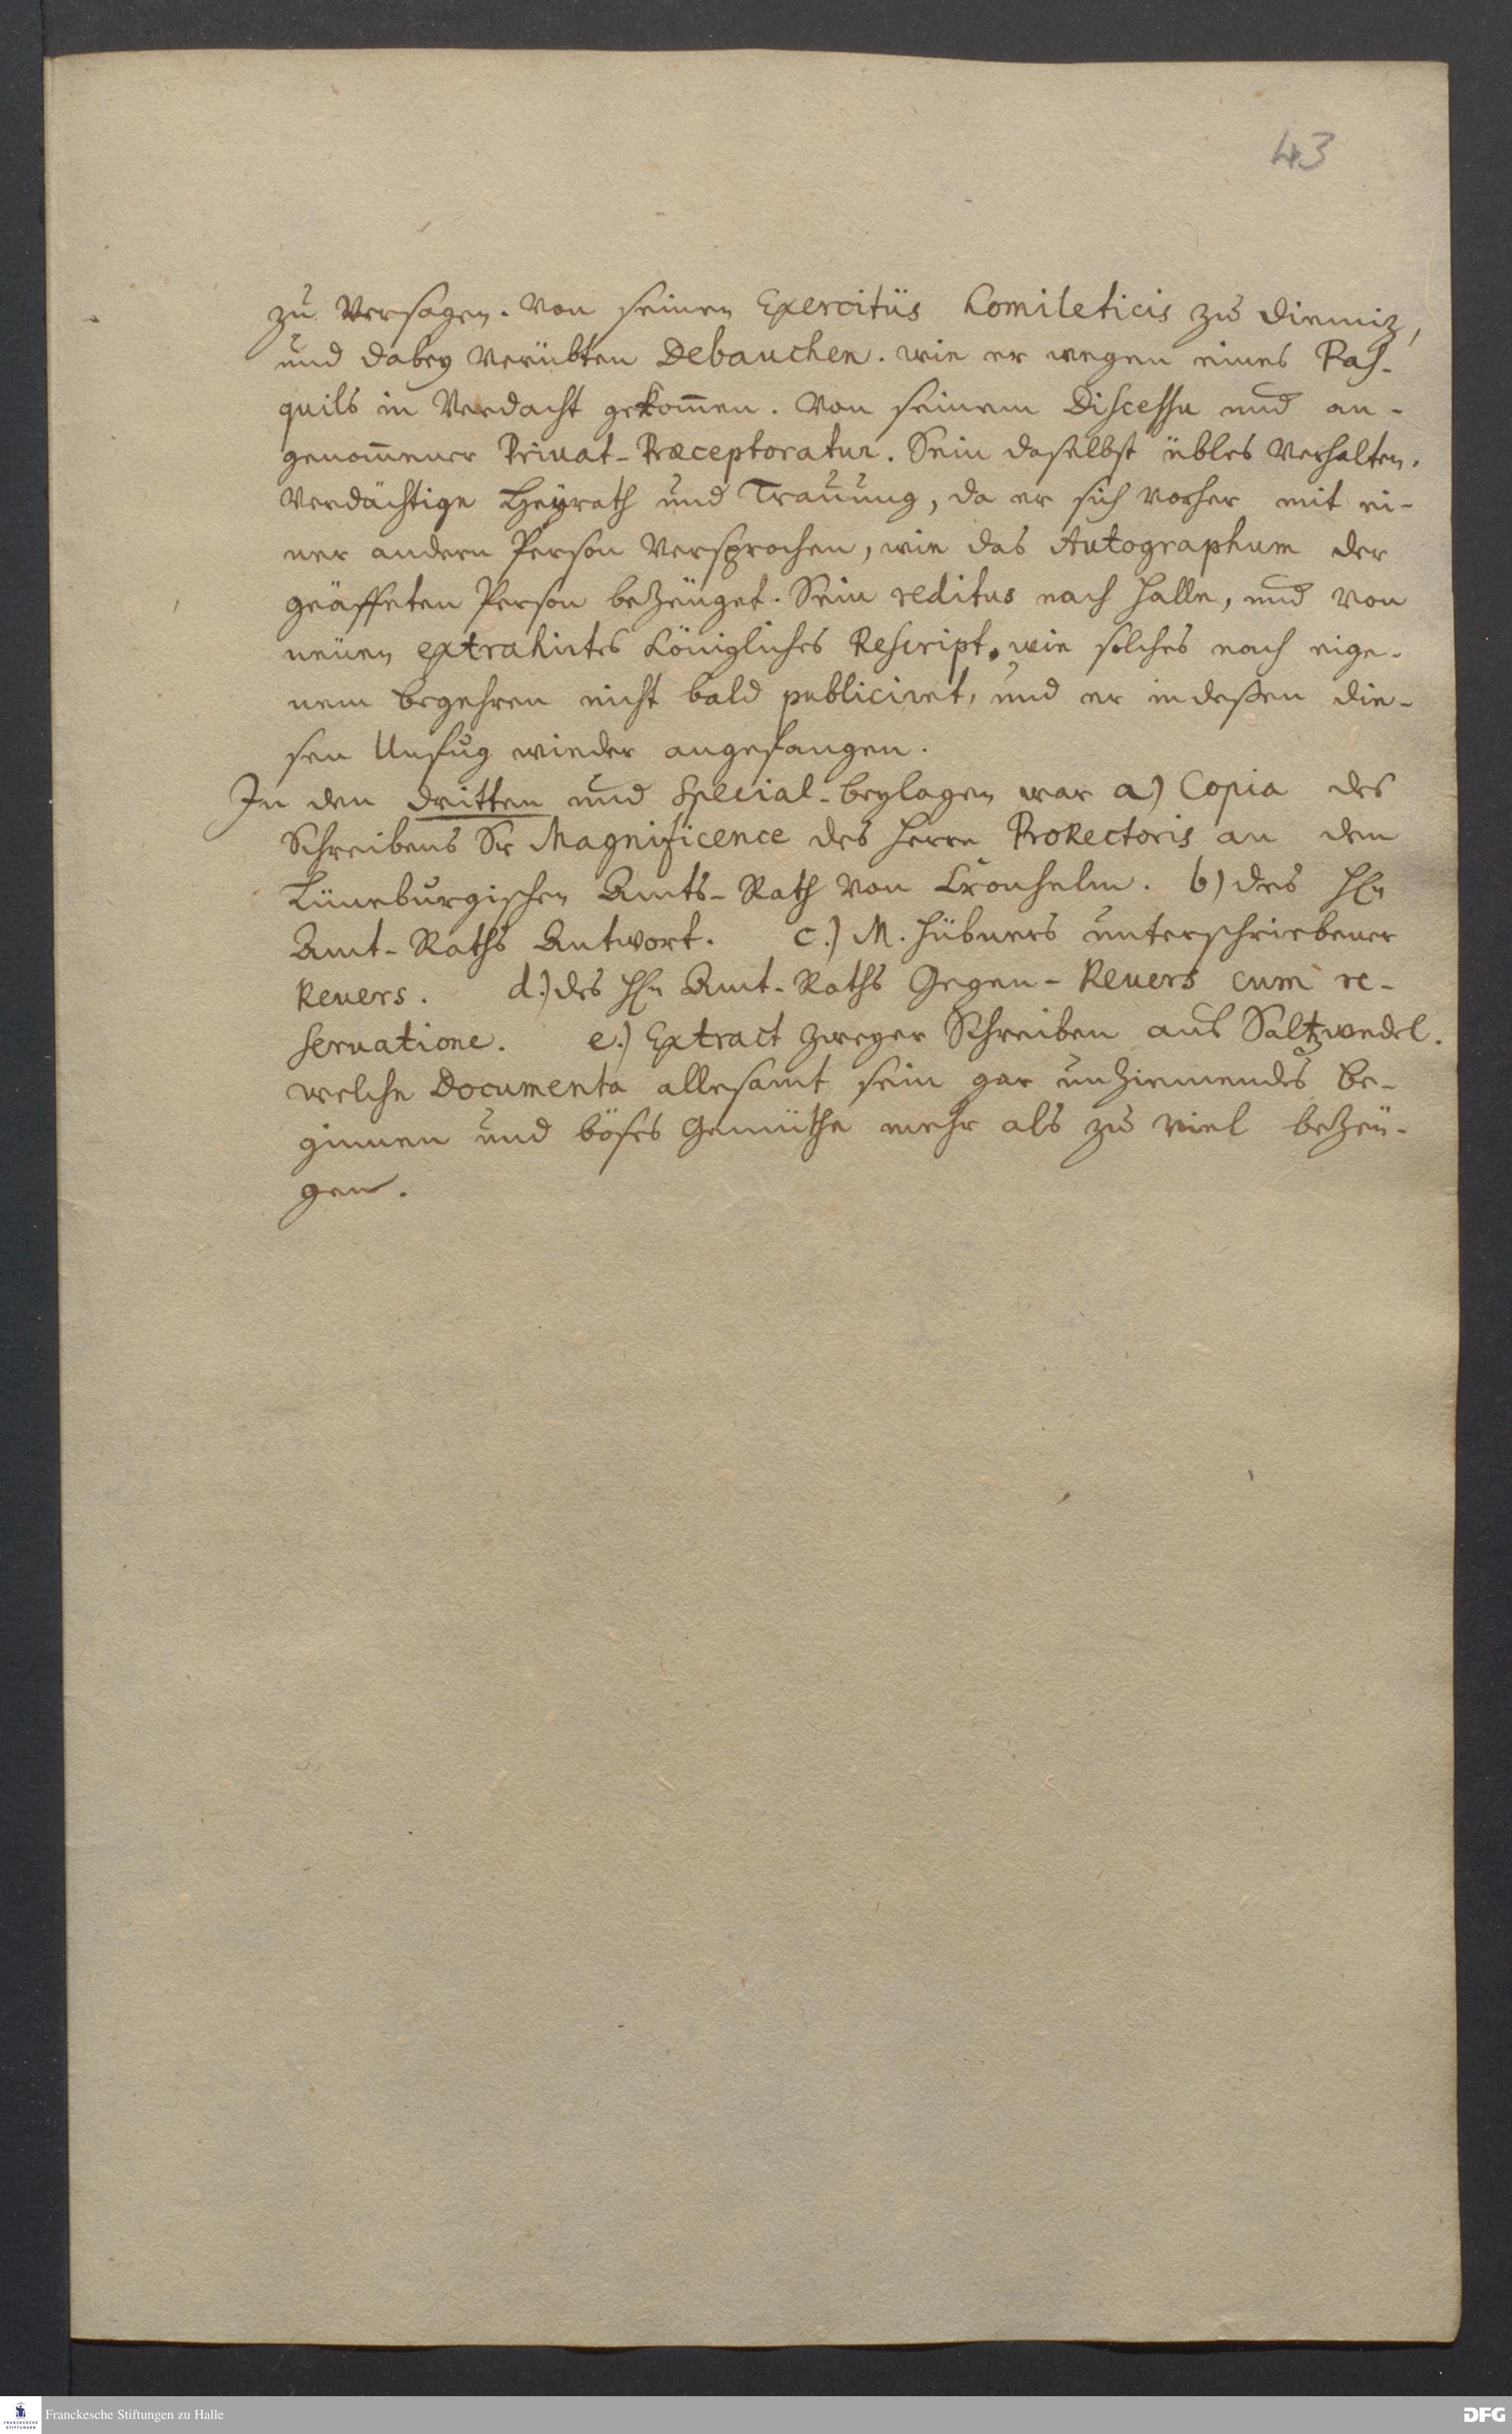 43
zu versagen. Von seinen Exercitiis homileticis zu Diemiz,
und dabey verübten Debauchen. wie er wegen eines Pas-
quils in Verdacht gekom̅en. Von seinem Discessu und an-
genom̅ener Privat-Praeceptoratur. Sein daselbst übles Verhalten.
Verdächtige Heyrath und Trauung, da er sich vorher mit ei-
ner andern Person versprochen, wie das Autographum der
geäffeten Person bezeüget. Sein reditus nach Halle, und von
neüen extrahirtes Königliches Rescript. wie solches nach eige-
nem begehren nicht bald publiciret, und er indeßen die-
sen Unfug wieder angefangen.
In den dritten und Special-beylagen war a) Copia des
Schreibens Sr Magnificence des Herrn ProRectoris an den
Lüneburgischen Amts-Rath von Cronhelm. b) des Hn
Amt-Raths Antwort. c.) M. Hübners unterschriebener
Revers. d.) des Hn Amt-Raths Gegen-Revers cum re-
servatione. e.) Extract zweyer Schreiben aus Saltzwedel.
welche Documenta allesamt sein gar unziemendes be-
ginnen und böses Gemüthe mehr als zu viel bezeü-
gen.
Franckesche Stiftungen zu Halle
FRANCKESCHE
STIFTUNGEN
DFG